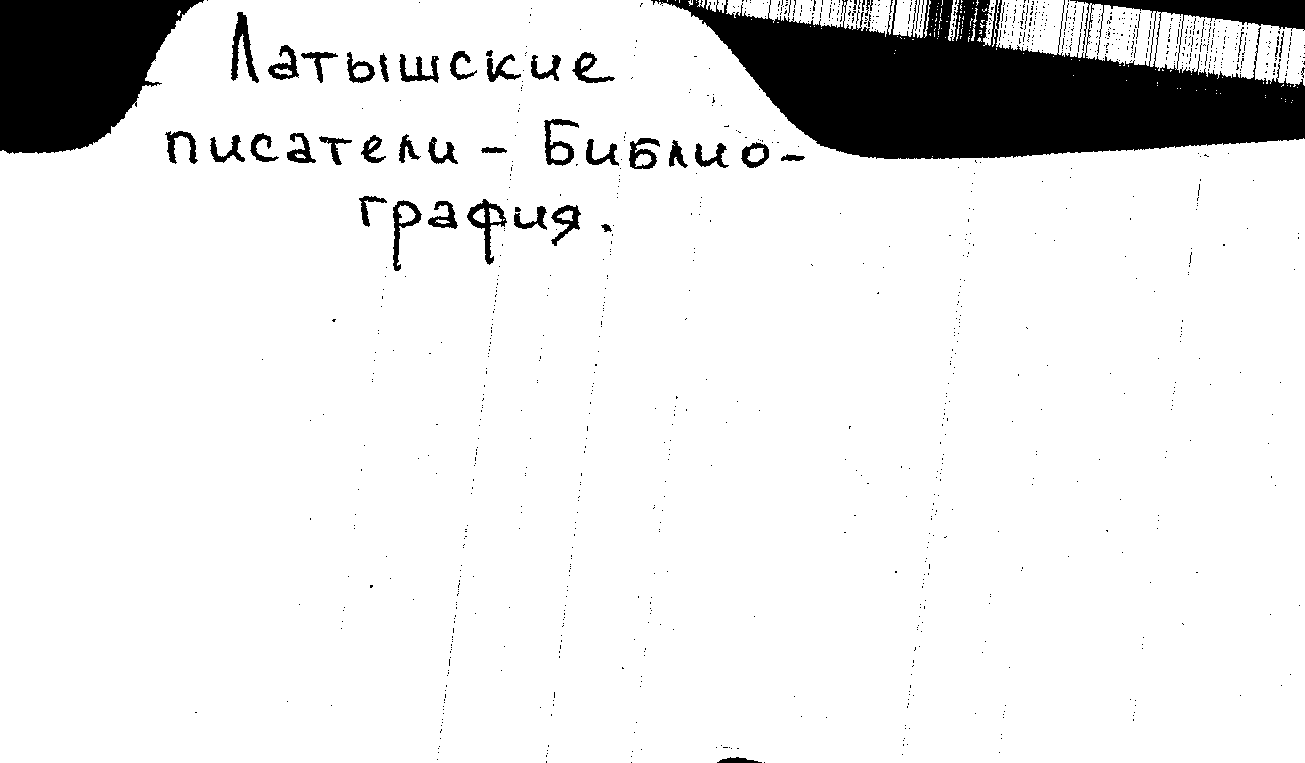 Латышские
писатели - Библио-
графия.